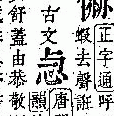 正字通呼
蝦去聲誑
古文
唐
韻
舒蓋由恭敬